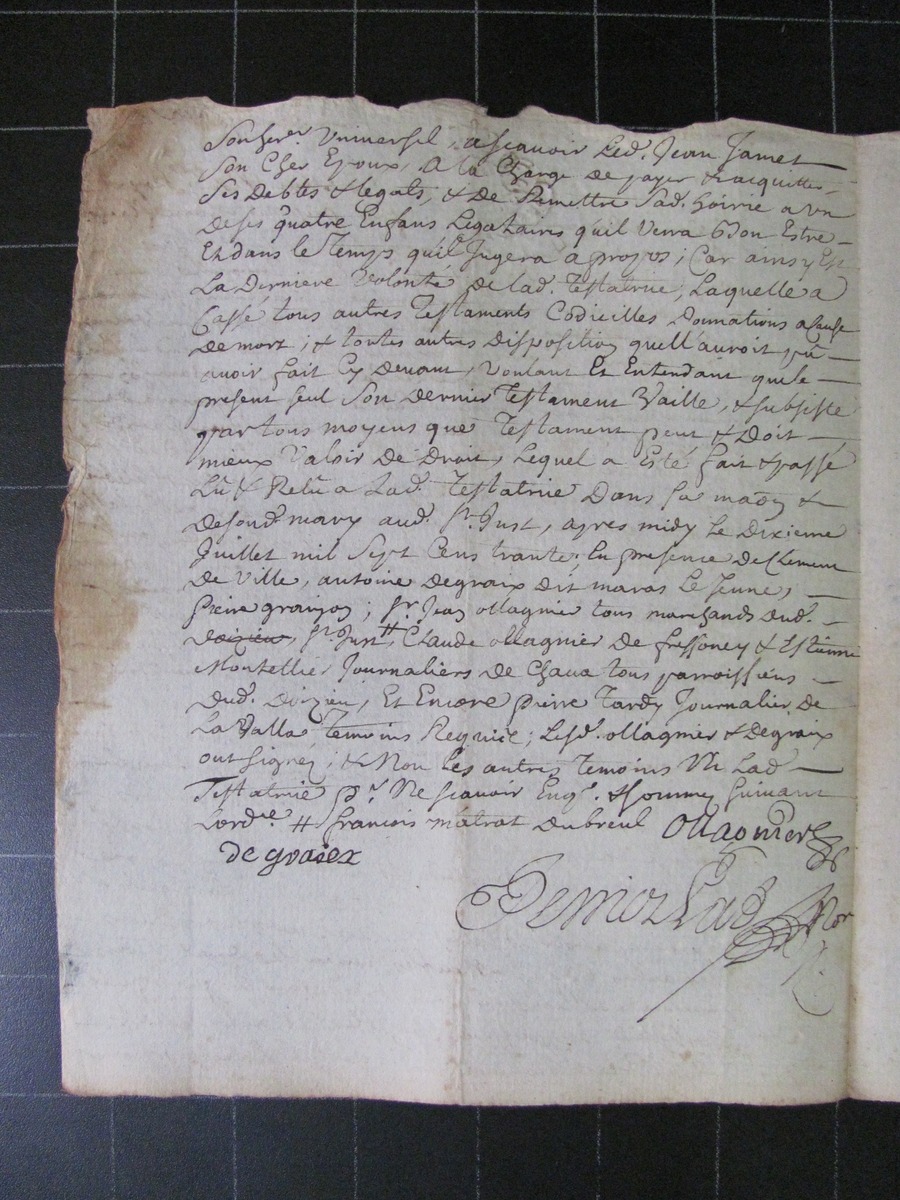 Son herer. Universel, ascavoir Led. Jean Jamet
Son Cher Epoux, a la Charge de payer & acquitter
Ses Debtes & legats, & De Remettre Sad. hoirie a un
de ses quatre Enfans Legataires quil Verra bon Estre
Et dans le Temps quil Jugera a propos; Car ainsy Est
La Derniere Volonté de lad. Testatrice, Laquelle a
Cassé tous autres Testaments Codicilles Donnations a Cause
de mort; & toutes autres disposition quell'auroit pû
avoir fait Cy devant, Voulant Et Entendant que le
present seul Son dernier Testament Vaille, & subsiste
par tous moyens que Testament peut & doit
mieux Valoir de Droit, Lequel a Esté fait & passé
Lû & Relû a Lad. Testatrice Dans la maison &
de sond. mary aud. St. Just, apres midy Le Dixieme
Juillet mil Sept Cens trante, En presence de Clement
de Ville, antoine degraix dit maras Le Jeune,
pierre granjon; Sr. Jean ollagnier tous marchands dud.
doizieu, St. Just #, Claude ollagnier de fressoney & Estienne
Montellier Journaliers de Chava tous parroissiens
dud. doizieu, Et Encore pierre Tardy Journalier de
La Valla, Temoins Requis; Lesd. ollagnier & degraix
ont signez; & Non les autres Temoins Ni Lad.
Testatrice pr. Ne scavoir Enq. & sommez suivant
Lordce. # francois matrat dubreul Ollagnier
de graiex